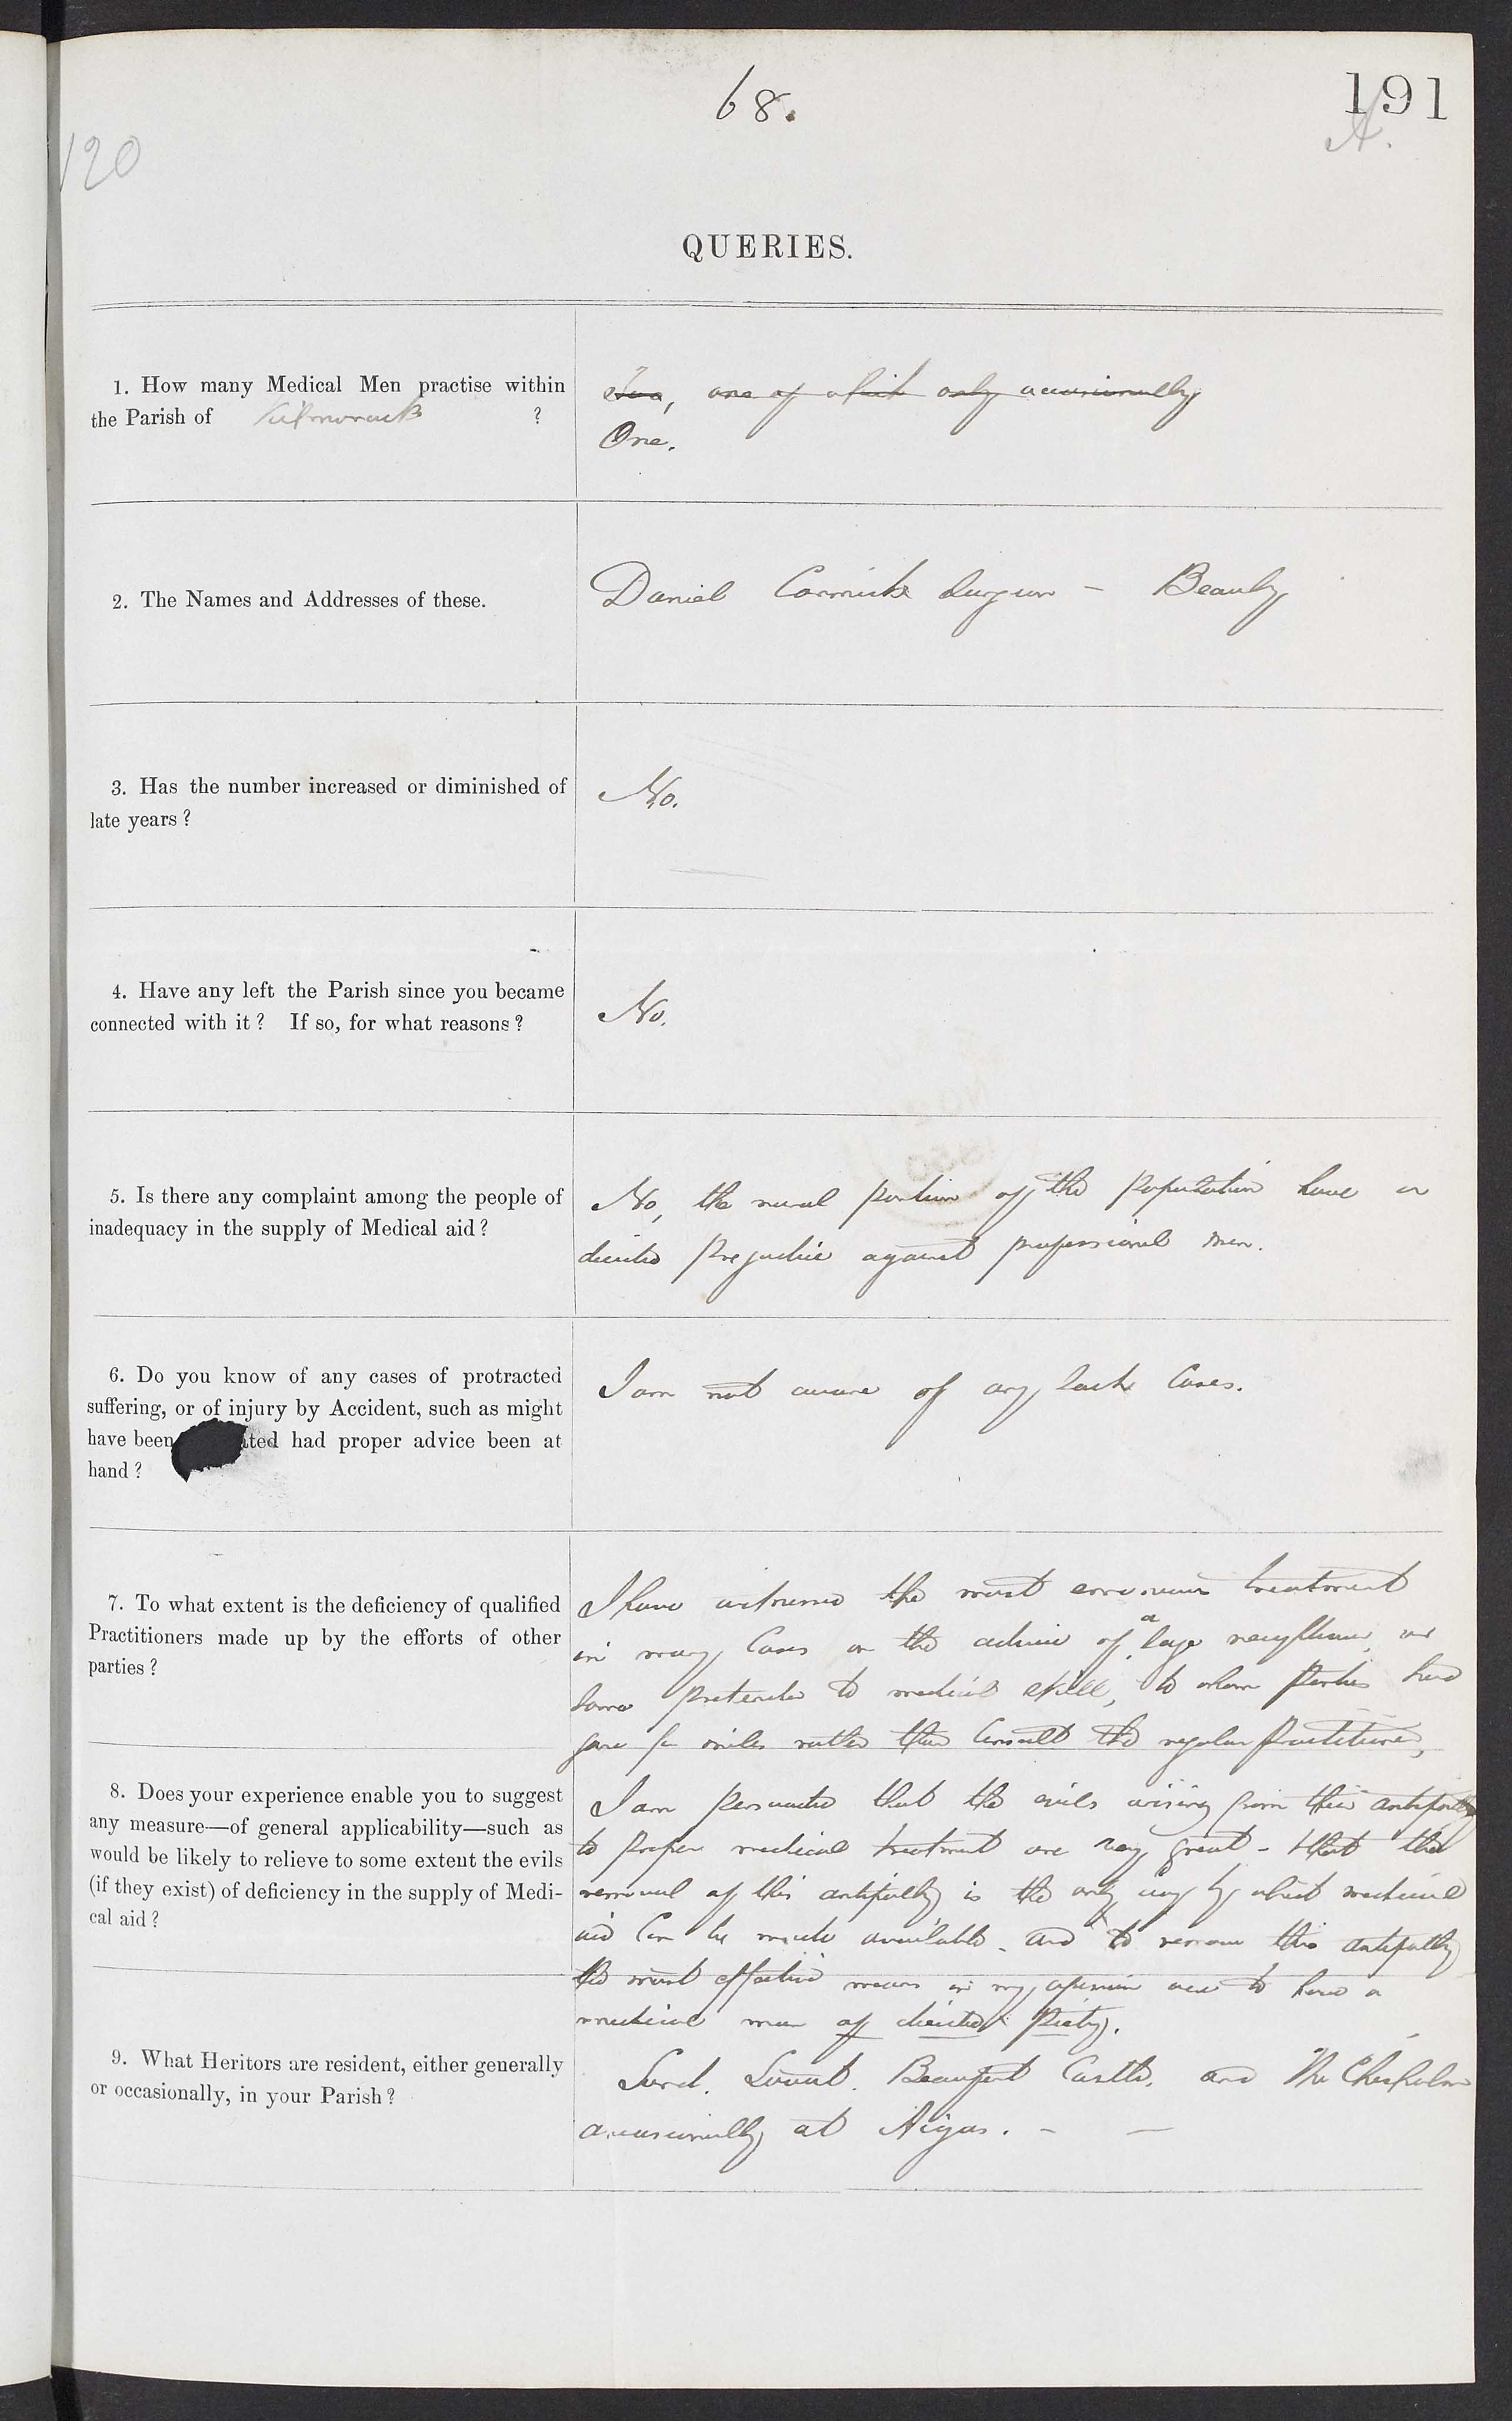 68.
191
A.
120
QUERIES.
1. How many Medical Men practise within
the Parish of Kilmorack ?
Two, one of which only occasionally
One.
2. The Names and Addresses of these.
Daniel Cormick Surgeon - Beauly
3. Has the number increased or diminished of
late years ?
No.
4. Have any left the Parish since you became
connected with it ? If so, for what reasons ?
No.
5. Is there any complaint among the people of
inadequacy in the supply of Medical aid ?
No, the rural portion of the population have a
decided prejudice against professional men.
6. Do you know of any cases of protracted
suffering, or of injury by Accident, such as might
have been ated had proper advice been at
hand ?
I am not aware of any such Cases.
7. To what extent is the deficiency of qualified
Practitioners made up by the efforts of other
parties ?
I have witnessed the most erroneous treatment
in many Cases on the advice of a neighbour or
some pretender to medical skill, to whom parties had
gone for miles rather than Consult the regular practitioner,
8. Does your experience enable you to suggest
any measure—of general applicability—such as
would be likely to relieve to some extent the evils
(if they exist) of deficiency in the supply of Medi-
cal aid ?
I am persuaded that the evils arising from this antipathy
to proper medical treatment are very great - that the
removal of this antipathy is the only way by which medical
aid Can be made available. and to remove this antipathy
the most effective means in my opinion were to have a
medical man of decided Piety.
9. What Heritors are resident, either generally
or occasionally, in your Parish ?
Lord. Lovat. Beaufort Castle. and The Chisholm
occasionally at Aigas. - —